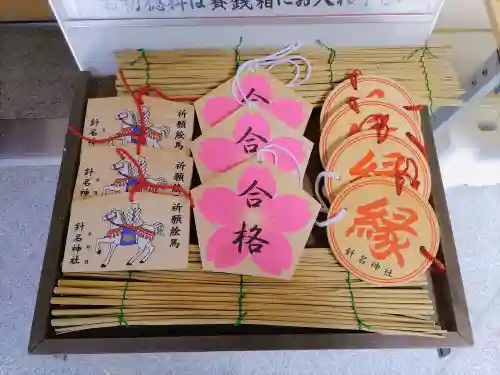 初穂料は賽銭箱にお入れ下さい
祈願絵馬
針名神社
祈願絵馬
針名神社
祈願絵馬
針名神社
合
合
合格
縁
縁
針名神社